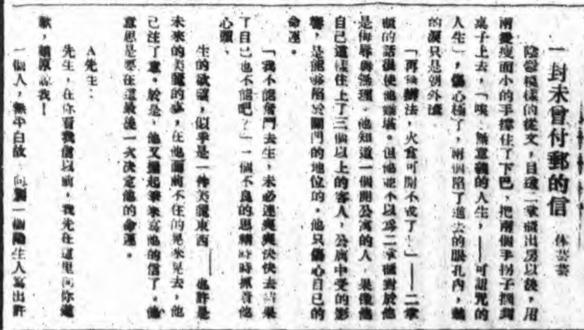 一封未曾付郵的信 休芸芸
陰鬱模樣的從文，目送二掌櫃出房以後，用
兩隻瘦而小的手撐住了下巴，把兩個手拐子擱到
桌子上去，「唉！無意義的人生，——可詛咒的
人生」，傷心極了，兩個陷了進去的眼孔內，熱
的淚只是朝外滾
「再無辦法，火食可開不成了！」——二掌
櫃的話很使他難堪，但他並不以為二掌櫃對於他
是侮辱與無理。他知道一個開公寓的人，果像他
自己這樣住上了三個以上的客人，公寓中受的影
響，是能夠陷於關門的地位的。他只傷心自己的
命運。
「我不能奮鬥去生，未必連爽爽快快去結果
了自己也不能吧？」一個不良的思緒時時抓着他
心頭。
生的欲望，似乎是一件美麗東西——也許是
未來的美麗的夢，在他面前不住的晃來晃去，他
已注了意。於是，他又握起筆來寫他的信了。他
意思是要在這最後一次決定他的命運。
A先生：
先生，在你看我信以前，我先在這里向你道
歉，請原諒我！
一個人，無平白故向別一個陌生人寫出許